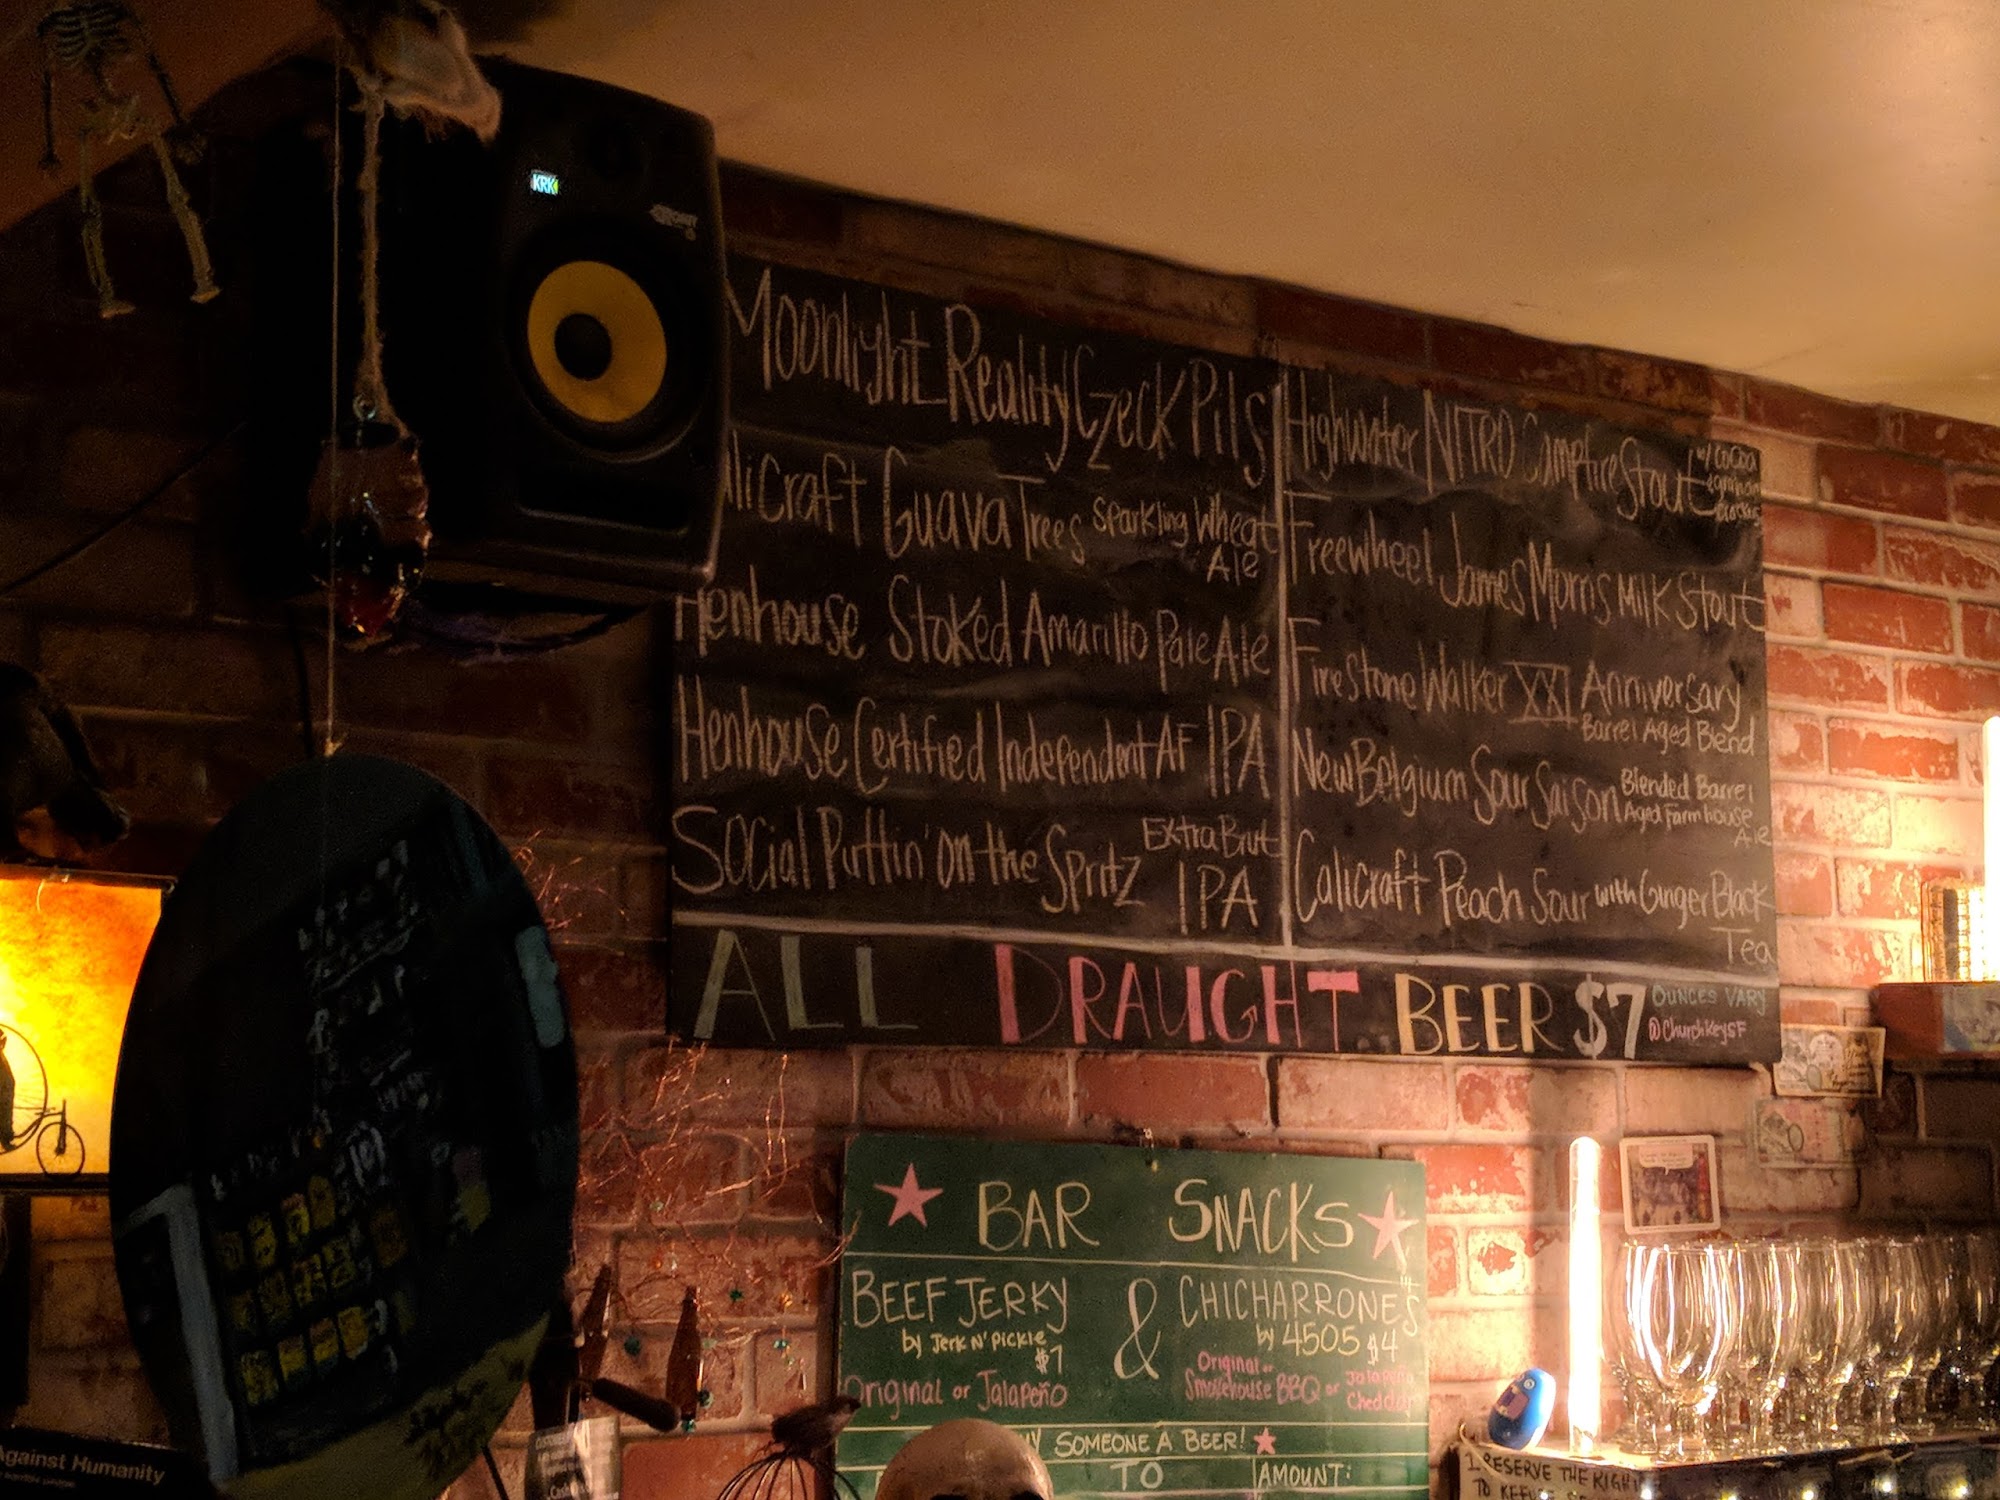 KRK
Moonlight Reality Czeck Pils
Calicraft Guava Trees Sparkling Wheat
Ale
Henhouse Stoked Amarillo Pale Ale
Henhouse Certified Independent AF IPA
Social Puttin' on the Spritz Extra Brut
IPA
Highwater NITRO Campfire Stout w/ cocoa
& graham
Freewheel James Morris Milk Stout
Firestone Walker XXI Anniversary
Barrel Aged Blend
New Belgium Sour Saison Blended Barrel
Aged Farmhouse
Ale
Calicraft Peach Sour with Ginger Black
Tea
ALL DRAUGHT BEER $7 OUNCES VARY
@ChurchKeySF
BAR SNACKS
BEEF JERKY & CHICHARRONES
by Jerk N' Pickle
$7
by 4505 $4
Original or Jalapeño
Original or
Smokehouse BBQ or Jalapeño
Cheddar
SOMEONE A BEER!
TO AMOUNT:
Against Humanity
I RESERVE THE RIGHT
TO REFUSE